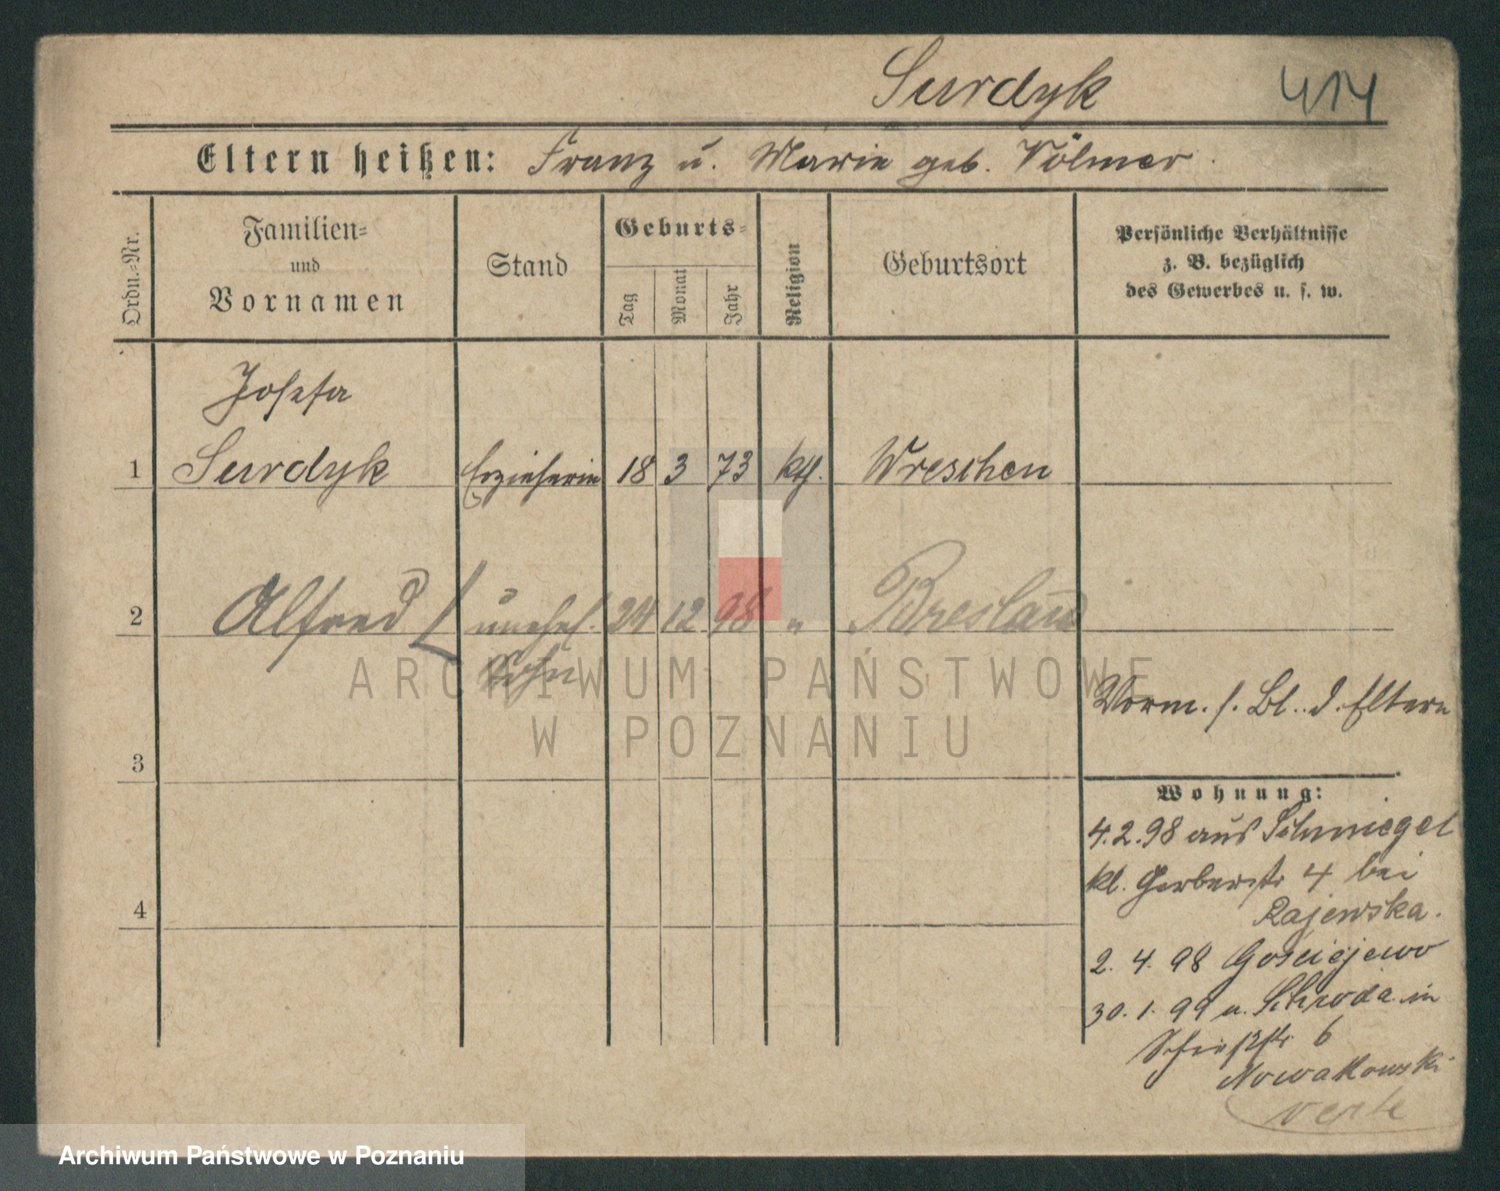 Surdyk 414
Eltern heißen: Franz u. Marie geb. Völmer.
Ordn.=Nr.
Familien=
und
Vornamen
Stand
Geburts=
Tag
Monat
Jahr
Religion
Geburtsort
Persönliche Verhältnisse
z. B. bezüglich
des Gewerbes u. s. w.
Josefa
1 Surdyk Erzieherin 18 3 73 kth. Wreschen
2 Alfred unehel. 24 12 98 " Breslau
Sohn
Vorm. s. Bl. d. Eltern
3
Wohnung:
4.2.98 aus Schmiegel
kl. Gerberstr 4 bei
Rajewska.
4
2. 4. 98 Gosciejewo
30. 1. 99 a. Schroda in
6
Nowakowski
verte
ARCHIWUM PAŃSTWOWE
W POZNANIU
Archiwum Państwowe w Poznaniu